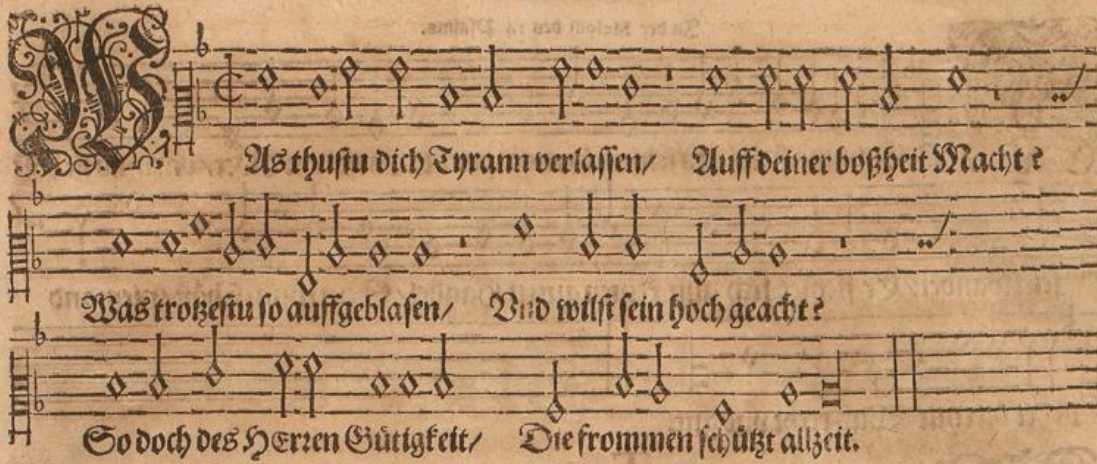 WAs thustu dich Tyrann verlassen/ Auff deiner boßheit Macht?
Was trotzestu so auffgeblasen/ Vnd wilst sein hoch geacht?
So doch des HErren Gütigkeit/ Die frommen schützt allzeit.